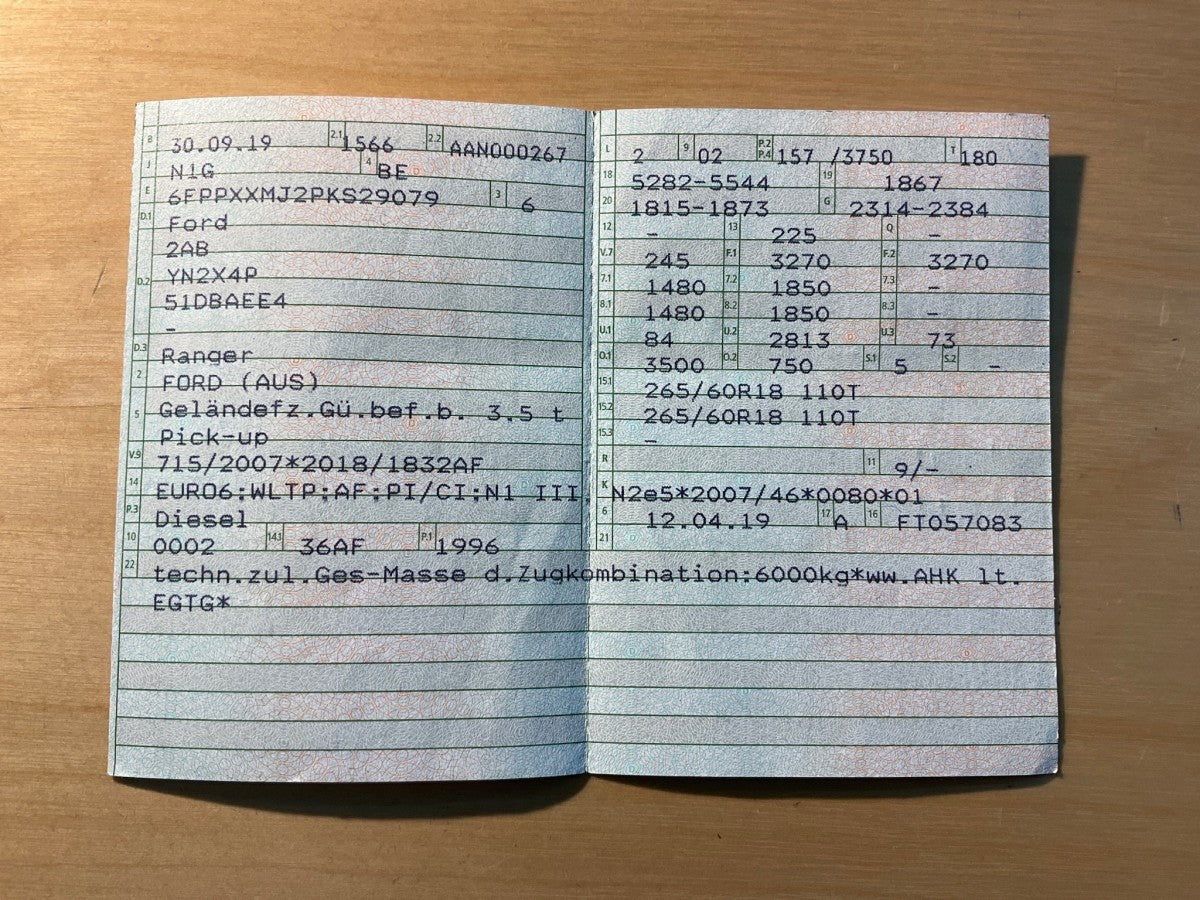 B 30.09.19 2.1 1566 2.2 AAN000267
J N1G 4 BE
E 6FPPXXMJ2PKS29079 3 6
D.1 Ford
2AB
D.2 YN2X4P
51DBAEE4
-
D.3 Ranger
2 FORD (AUS)
5 Geländefz.Gü.bef.b. 3.5 t
Pick-up
V.9 715/2007*2018/1832AF
14 EURO6;WLTP;AF;PI/CI;N1 III,
P.3 Diesel
10 0002 14.1 36AF P.1 1996
L 2 9 02 P.2 P.4 157 /3750 T 180
18 5282-5544 19 1867
20 1815-1873 G 2314-2384
12 - 13 225 Q -
V.7 245 F.1 3270 F.2 3270
7.1 1480 7.2 1850 7.3 -
8.1 1480 8.2 1850 8.3 -
U.1 84 U.2 2813 U.3 73
O.1 3500 O.2 750 S.1 5 S.2 -
15.1 265/60R18 110T
15.2 265/60R18 110T
15.3 -
R 11 9/-
K N2e5*2007/46*0080*01
6 12.04.19 17 A 16 FT057083
21
22 techn.zul.Ges-Masse d.Zugkombination:6000kg*ww.AHK lt.
EGTG*